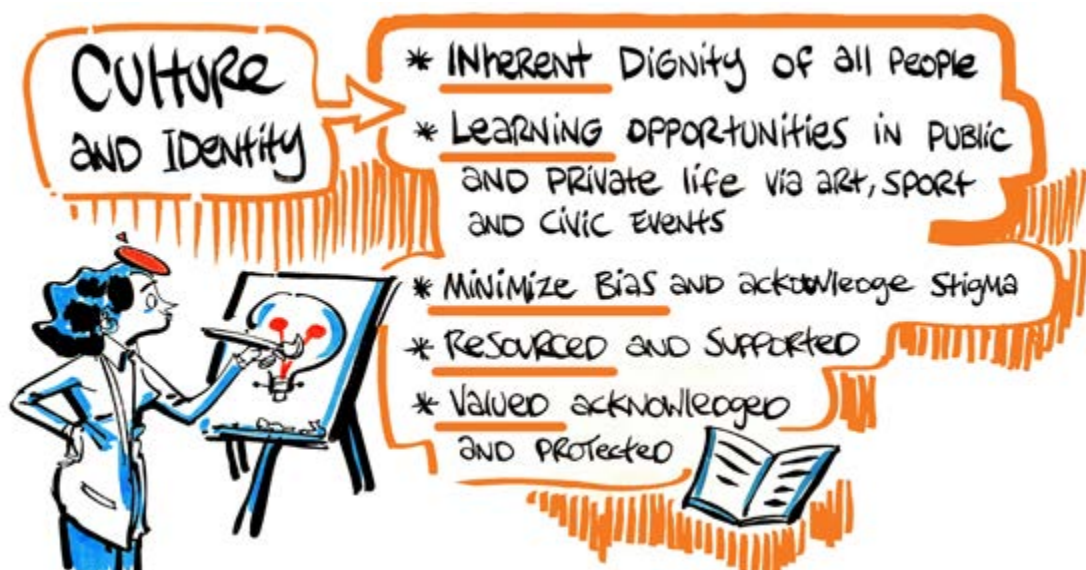 Culture
and Identity
* Inherent Dignity of all People
* Learning opportunities in public
and private life via art, sport
and civic events
* Minimize Bias and acknowledge stigma
* Resourced and Supported
* Valued acknowledged
and protected